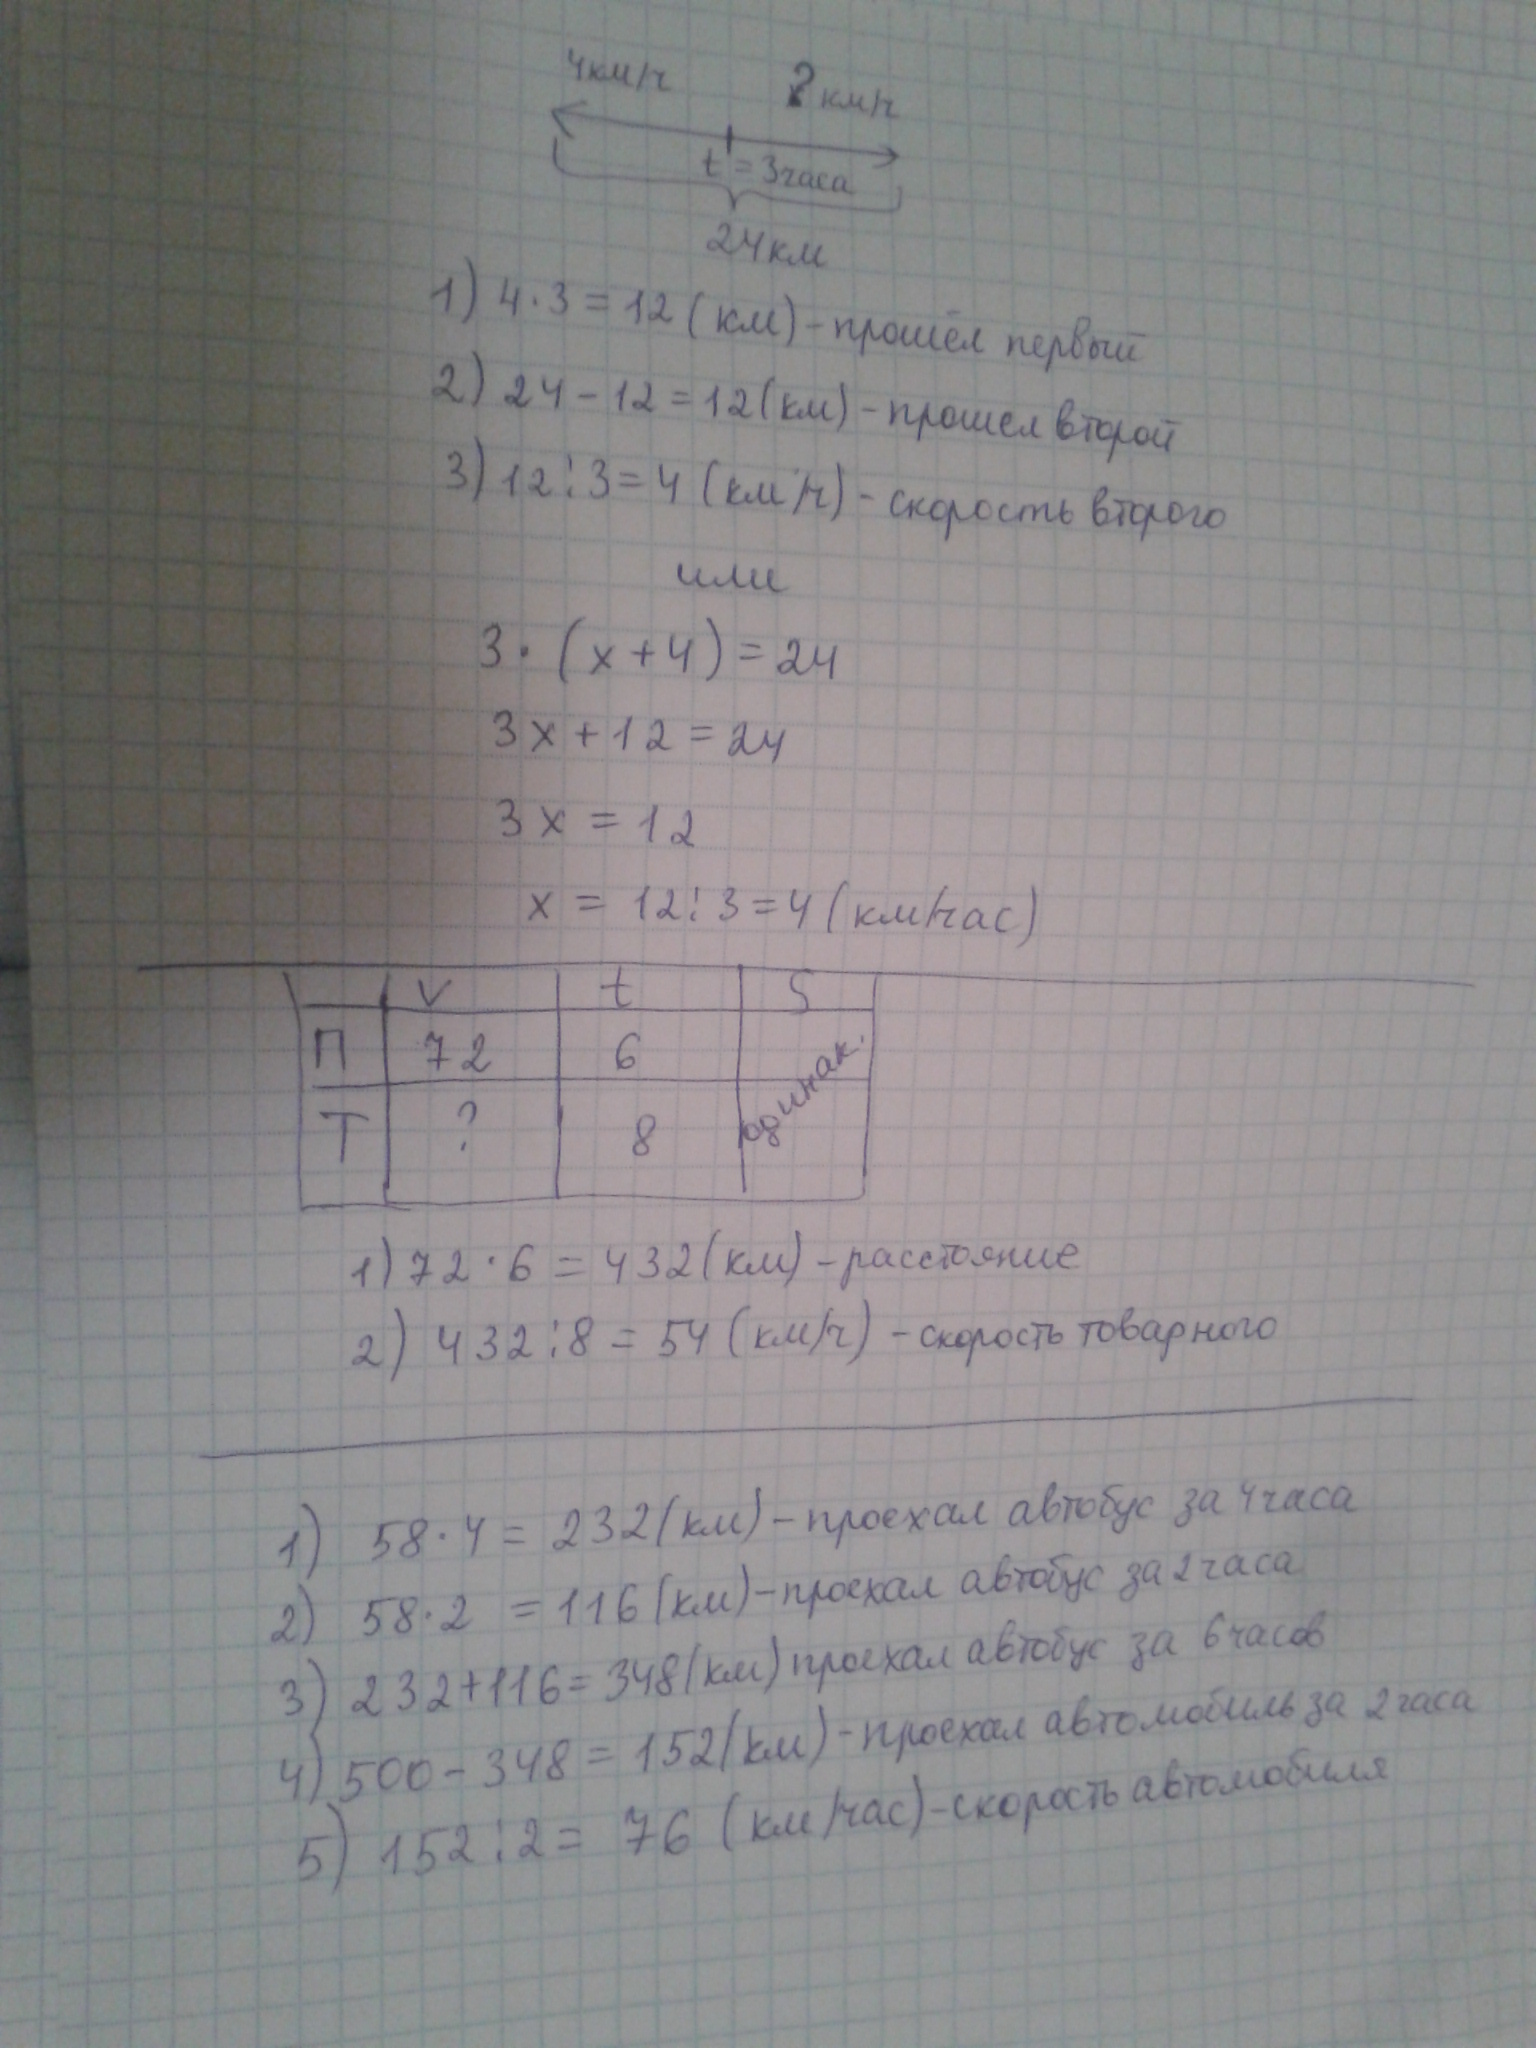 4км/ч ? км/ч
t = 3часа
24км
1) 4·3=12 (км) - прошёл первый
2) 24-12=12(км) - прошел второй
3) 12:3=4 (км/ч) - скорость второго
или
3·(x+4)=24
3x+12=24
3x=12
x = 12:3=4 (км/час)
V t S
П 72 6 одинак.
Т ? 8
1) 72·6=432(км) - расстояние
2) 432:8=54(км/ч) - скорость товарного
1) 58·4=232(км) - проехал автобус за 4часа
2) 58·2 =116(км) - проехал автобус за 2часа
3) 232+116=348(км) проехал автобус за 6часов
4) 500-348=152(км) - проехал автомобиль за 2часа
5) 152:2= 76 (км/час) - скорость автомобиля